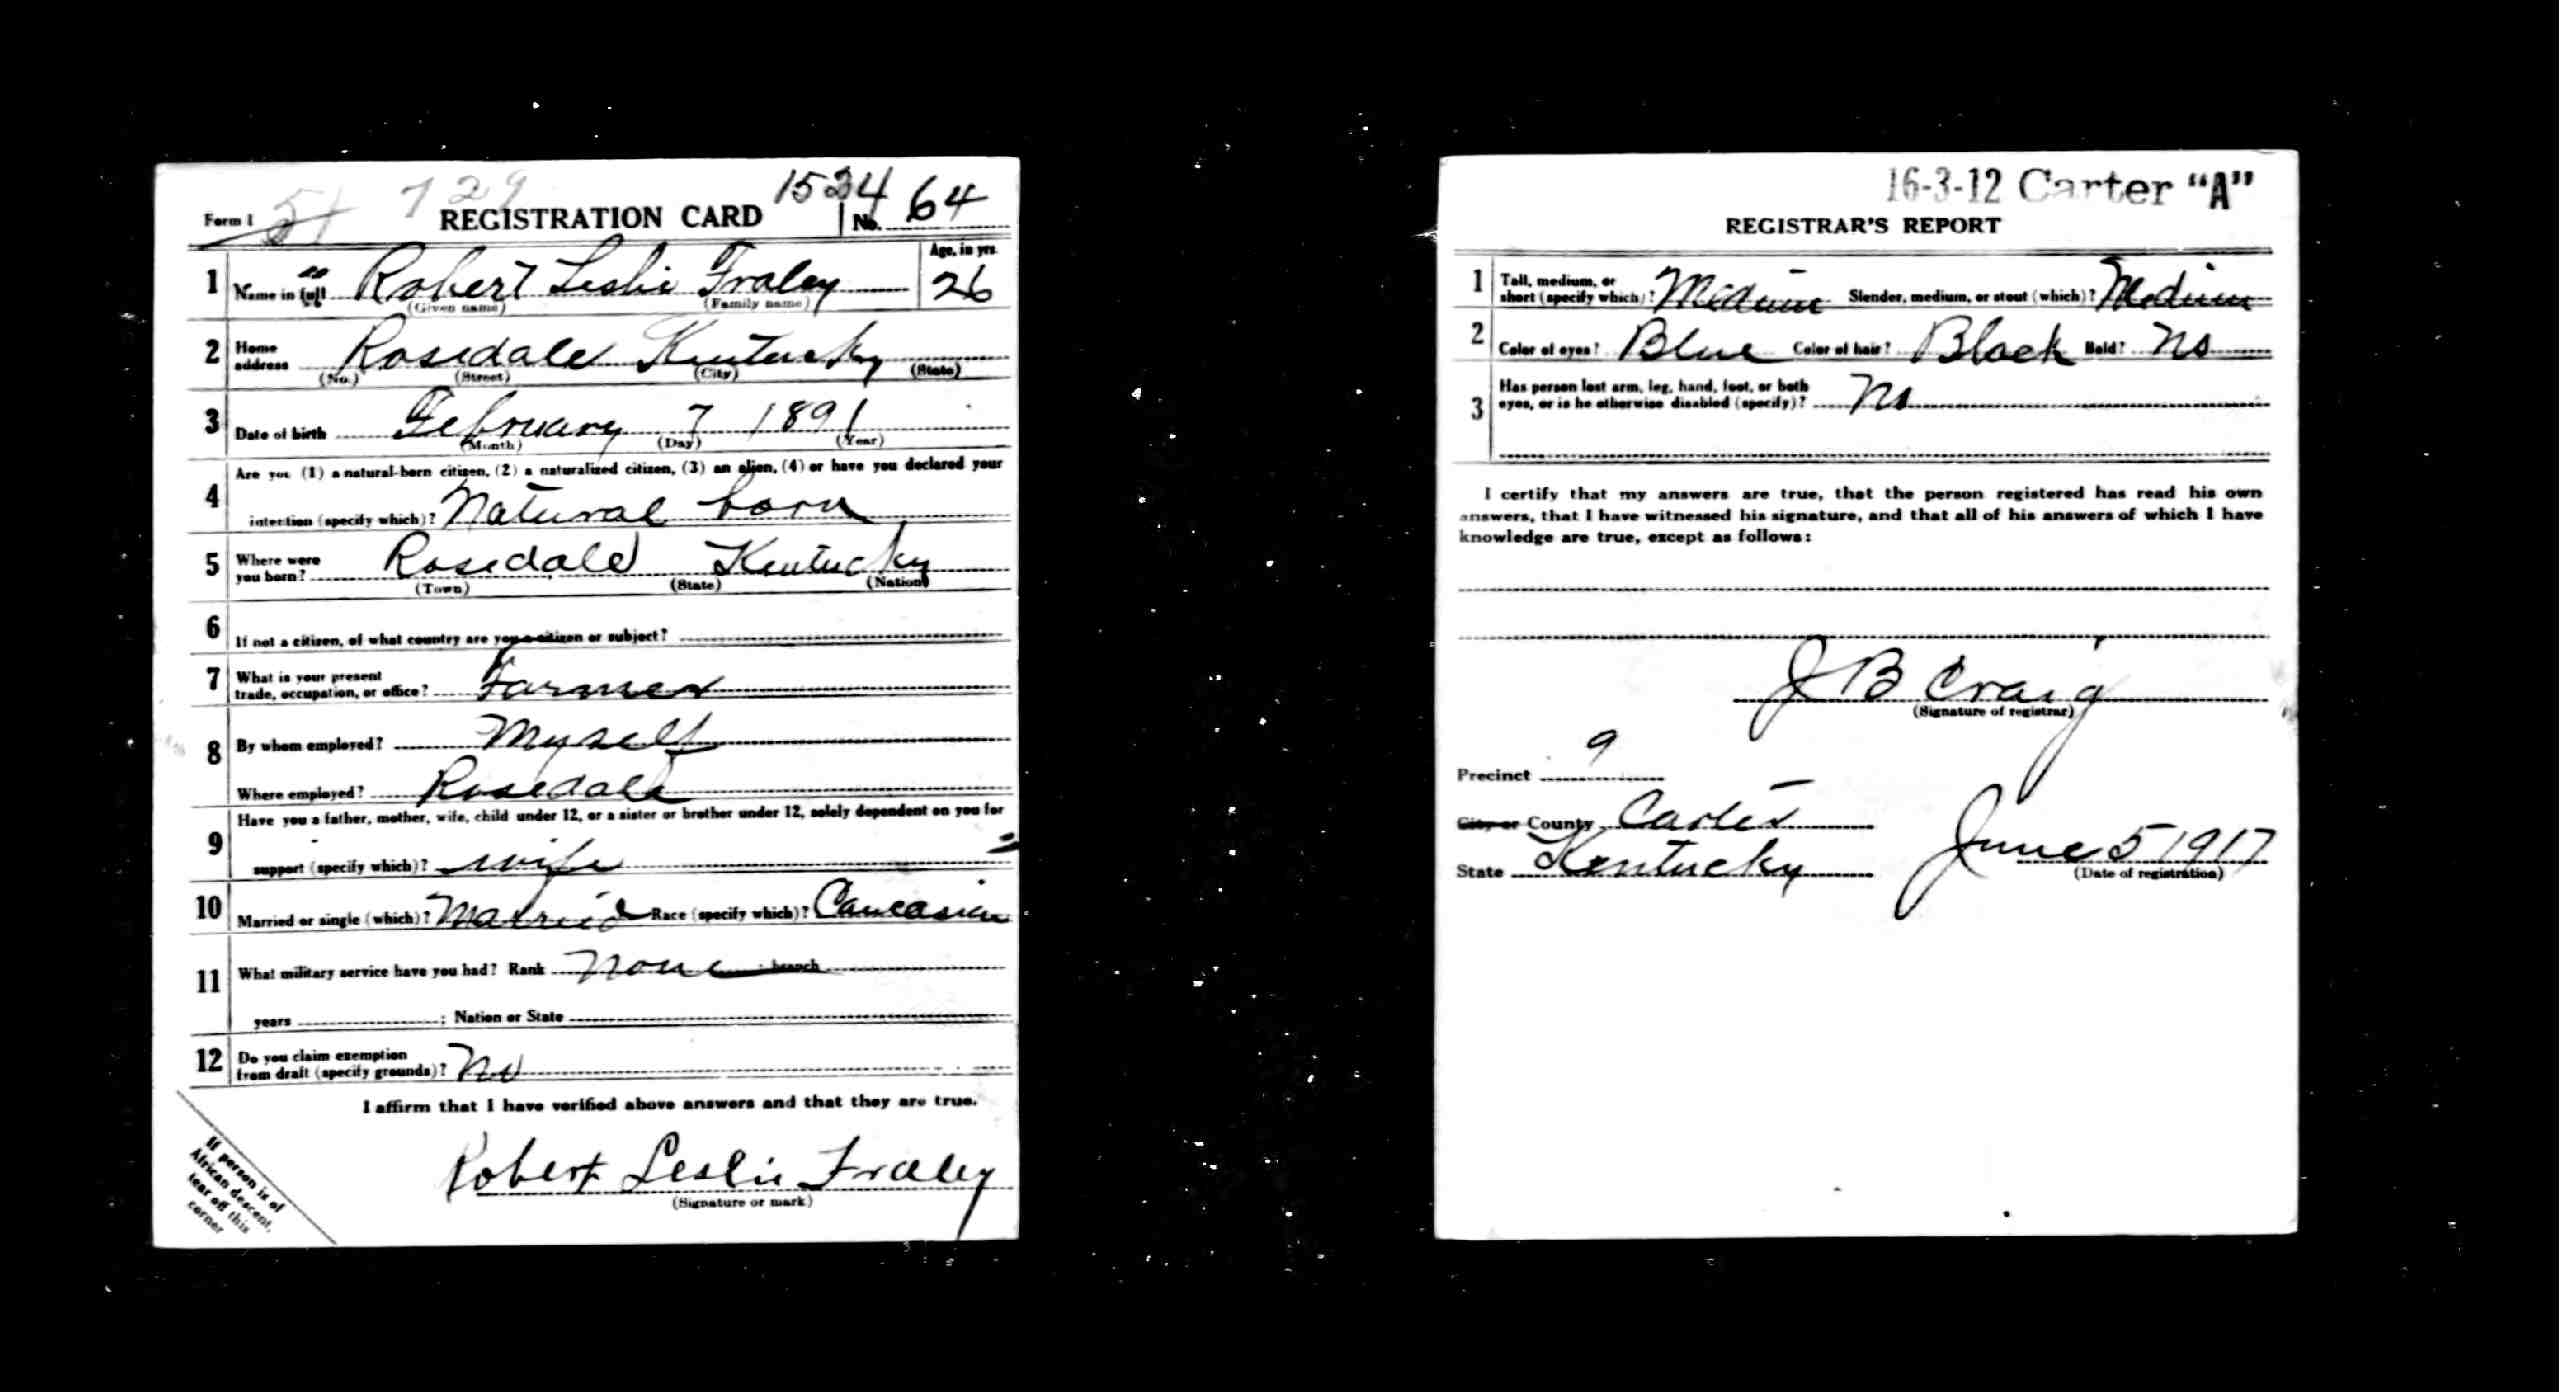 729
1534
Form 1 REGISTRATION CARD No. 64
1 Name in full Robert Leslie Fraley Age, in yrs. 26
(Given name) (Family name)
2 Home address Rosedale Kentucky
(No.) (Street) (City) (State)
3 Date of birth February 7 1891
(Month) (Day) (Year)
4 Are you (1) a natural-born citizen, (2) a naturalized citizen, (3) an alien, (4) or have you declared your
intention (specify which)? Natural born
5 Where were you born? Rosedale Kentucky
(Town) (State) (Nation)
6 If not a citizen, of what country are you a citizen or subject?
7 What is your present trade, occupation, or office? Farmer
8 By whom employed? Myself
Where employed? Rosedale
9 Have you a father, mother, wife, child under 12, or a sister or brother under 12, solely dependent on you for
support (specify which)? wife
10 Married or single (which)? Married Race (specify which)? Caucasian
11 What military service have you had? Rank None branch
years ; Nation or State
12 Do you claim exemption from draft (specify grounds)? No
I affirm that I have verified above answers and that they are true.
Robert Leslie Fraley
(Signature or mark)
If person is of
African descent,
tear off this
corner
16-3-12 Carter "A"
REGISTRAR'S REPORT
1 Tall, medium, or short (specify which)? Medium Slender, medium, or stout (which)? Medium
2 Color of eyes? Blue Color of hair? Black Bald? No
3 Has person lost arm, leg, hand, foot, or both eyes, or is he otherwise disabled (specify)? No
I certify that my answers are true, that the person registered has read his own
answers, that I have witnessed his signature, and that all of his answers of which I have
knowledge are true, except as follows:
J B Craig
(Signature of registrar)
Precinct 9
City or County Carter
State Kentucky June 5 1917
(Date of registration)